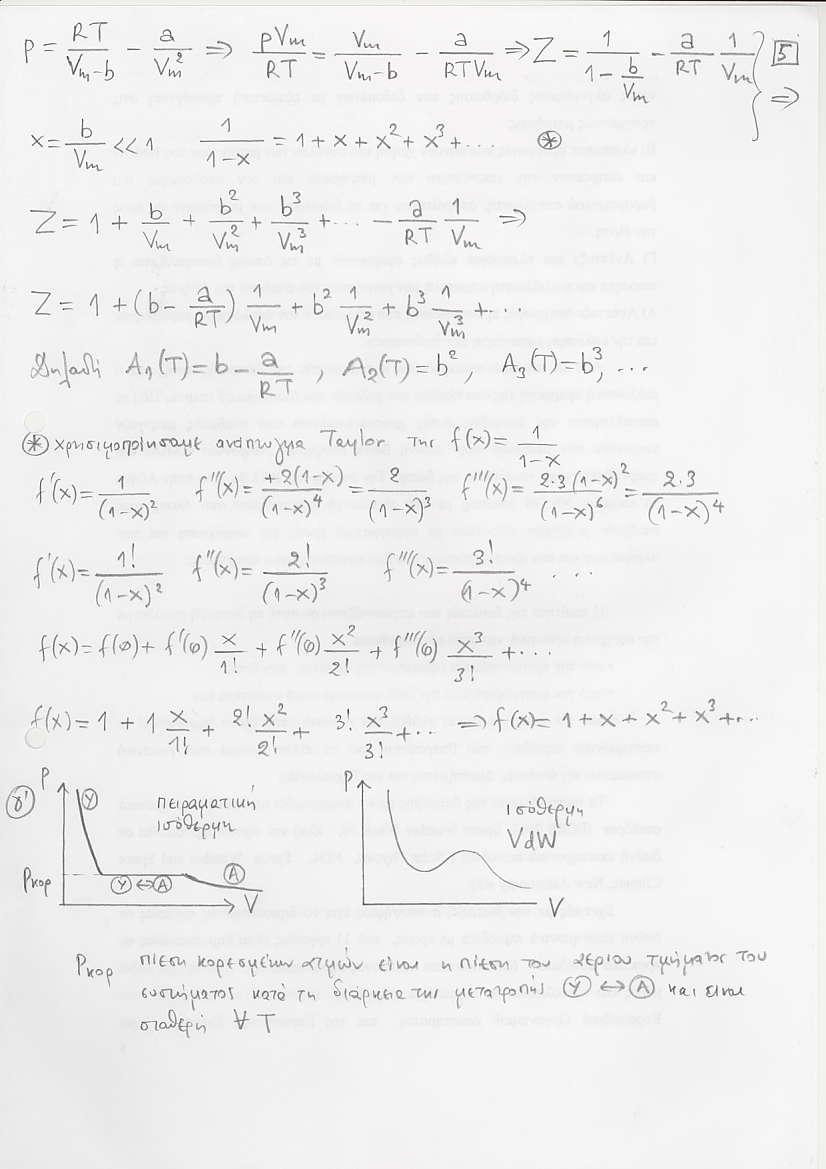 p = RT/(Vm-b) - a/Vm² ⇒ pVm/RT = Vm/(Vm-b) - a/(RTVm) ⇒ Z = 1/(1 - b/Vm) - a/RT 1/Vm } 5 ⇒
x = b/Vm << 1 1/(1-x) = 1 + x + x² + x³ + ... ⊛
Z = 1 + b/Vm + b²/Vm² + b³/Vm³ + ... - a/RT 1/Vm ⇒
Z = 1 + (b - a/RT) 1/Vm + b² 1/Vm² + b³ 1/Vm³ + ...
Δηλαδή A₁(T) = b - a/RT , A₂(T) = b², A₃(T) = b³, ...
⊛ χρησιμοποιήσαμε ανάπτυγμα Taylor της f(x) = 1/(1-x)
f'(x) = 1/(1-x)² f''(x) = +2(1-x)/(1-x)⁴ = 2/(1-x)³ f'''(x) = 2·3(1-x)²/(1-x)⁶ = 2·3/(1-x)⁴
f'(x) = 1!/(1-x)² f''(x) = 2!/(1-x)³ f'''(x) = 3!/(1-x)⁴ ...
f(x) = f(0) + f'(0) x/1! + f''(0) x²/2! + f'''(0) x³/3! + ...
f(x) = 1 + 1 x/1! + 2! x²/2! + 3! x³/3! + ... ⇒ f(x) = 1 + x + x² + x³ + ...
γ'
P
Υ
πειραματική
ισόθερμη
Pκορ
Υ ↔ Α
Α
V
P
ισόθερμη
VdW
V
Pκορ πίεση κορεσμένων ατμών είναι η πίεση του αερίου τμήματος του
συστήματος κατά τη διάρκεια της μετατροπής Υ ↔ Α και είναι
σταθερή ∀ T